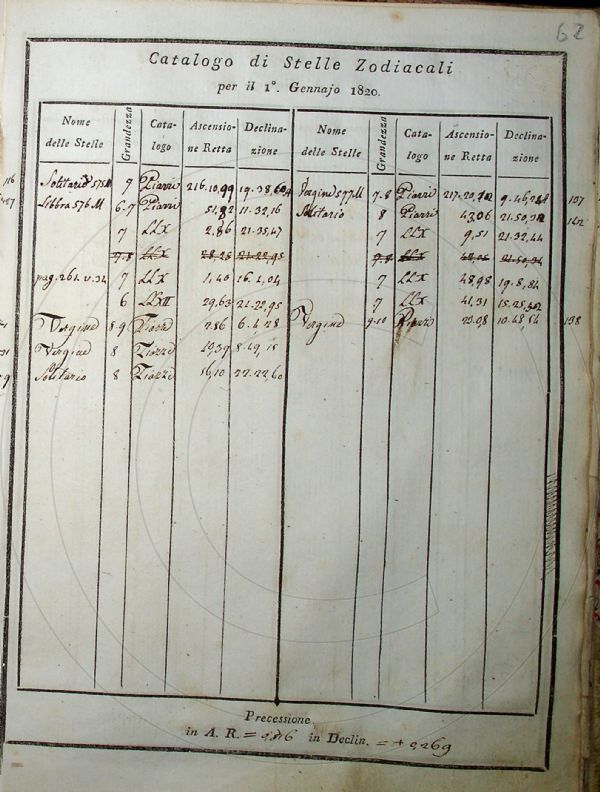 62
Catalogo di Stelle Zodiacali
per il 1°. Gennajo 1820.
Nome delle Stelle Grandezza Cata-logo Ascensio-ne Retta Declina-zione Nome delle Stelle Grandezza Cata-logo Ascensio-ne Retta Declina-zione
Solitario 575 M 7 Piazzi 7.8 Piazzi
Libbra 576 M 6.7 Piazzi 11.32,16 Solitario 8 Piazzi 43,06
7 LLX 2,86 21.35,47 7 LLX 9,51 21.32,44
7.8 LLX 28,28 21.22,95 7.8 LLX
pag. 261. v. 34 7 LLX 1,40 16.1,04 7 LLX 48,98 19.8,84
6 LLXII 29,63 21.22,95 7 LLX 41,31
Vergine 8.9 Piazzi 2,86 6.4,28 Vergine 9.10 Piazzi 10.48,54 138
Vergine 8 Piazzi 19,39 8.49,15
Solitario 8 Piazzi 16,10 22.22,60
Precessione
in A. R. = in Declin. = + 0,269